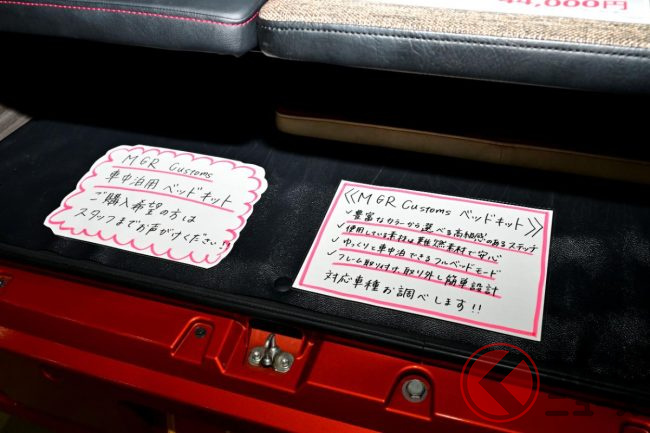 44,000円
MGR Customs
車中泊用 ベッドキット
ご購入希望の方は
スタッフまでお声がけください!!
《MGR Customs ベッドキット》
✓豊富なカラーから選べる高級感のあるステッチ
✓使用している素材は難燃素材で安心
✓ゆっくりと車中泊できるフルベッドモード
✓フレーム取り付け、取り外し簡単設計
対応車種お調べします!!